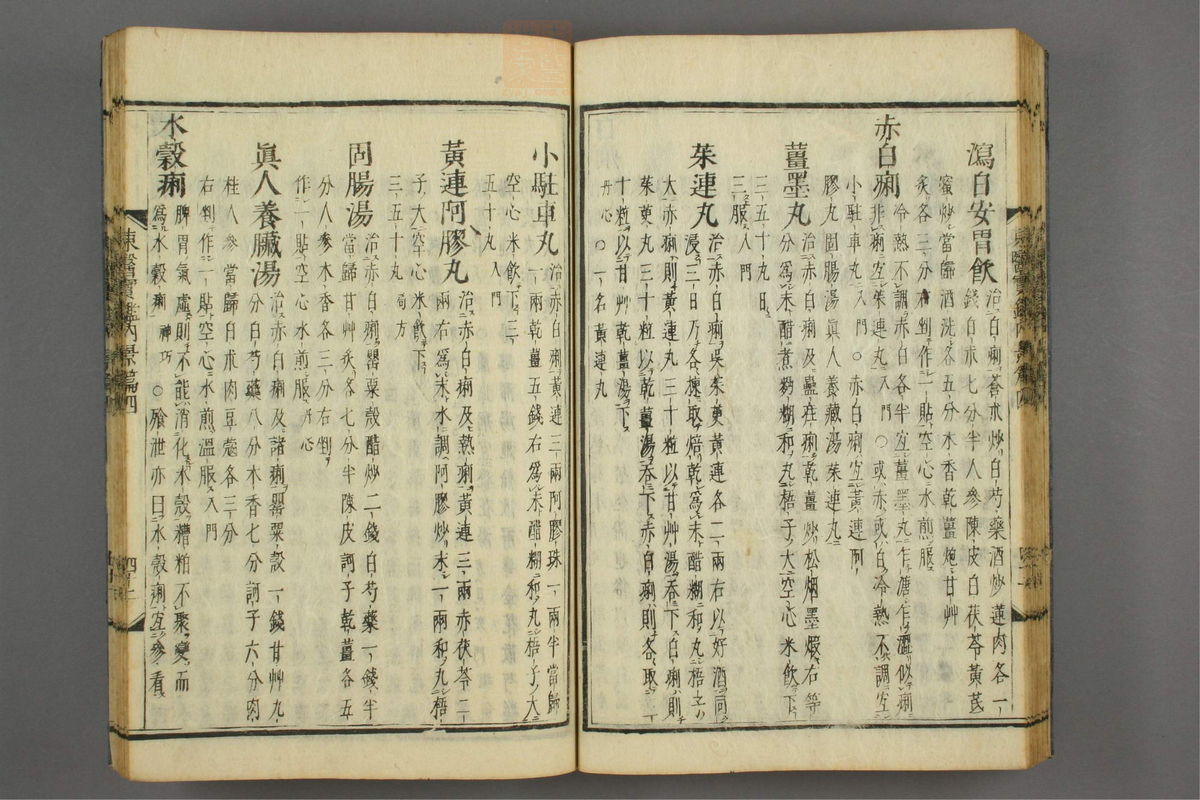 瀉白安胃飲 治白痢蒼朮炒白芍藥酒炒蓮肉各一
錢白朮七分半人參陳皮白茯苓黃芪
蜜炒當歸酒洗各五分木香乾薑炮甘艸
炙各三分右剉作一貼空心水煎服
赤白痢 冷熱不調赤白各半宜薑墨丸乍溏乍澀似痢
非痢宜茱連丸入門○或赤或白冷熱不調宜
小駐車丸入門○赤白痢宜黃連阿
膠丸固腸湯眞人養藏湯茱連丸
薑墨丸 治赤白痢及蠱疰痢乾薑炒松烟墨煆右等
分爲末醋煮麪糊和丸梧子大空心米飲下
三五十丸日
三服入門
茱連丸 治赤白痢吳茱萸黃連各二兩右以好酒同
浸三日乃各揀取焙乾爲末醋糊和丸梧子
大赤痢則黃連丸三十粒以甘艸湯呑下白痢則
茱萸丸三十粒以乾薑湯呑下赤白痢則各取三
十粒以甘艸乾薑湯下
丹心○一名黃連丸
東醫寶鑑內景篇四
小駐車丸 治赤白痢黃連三兩阿膠珠一兩半當歸
一兩乾薑五錢右爲末醋糊和丸梧子大
空心米飲下三
五十丸入門
黃連阿膠丸 治赤白痢及熱痢黃連三兩赤茯苓二
兩右爲末水調阿膠炒末一兩和丸梧
子大空心米飲下
三五十丸局方
固腸湯 治赤白痢罌粟殼醋炒二錢白芍藥一錢半
當歸甘艸炙各七分半陳皮訶子乾薑各五
分人參木香各三分右剉
作一貼空心水煎服丹心
眞人養臟湯 治赤白痢及諸痢罌粟殼一錢甘艸九
分白芍藥八分木香七分訶子六分肉
桂人參當歸白朮肉豆蔲各三分
右剉作一貼空心水煎溫服入門
水穀痢 脾胃氣虛則不能消化水穀糟粕不聚變而
爲水穀痢神巧○飱泄亦曰水穀痢宜參看